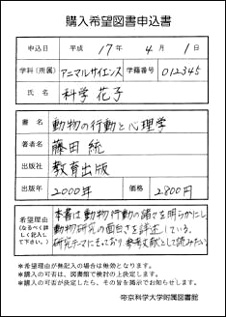 購入希望図書申込書
申込日 平成 17年 4月 1日
学科(所属) アニマルサイエンス 学籍番号 012345
氏名 科学 花子
書名 動物の行動と心理学
著者名 藤田 統
出版社 教育出版
出版年 2000年 価格 2800円
希望理由 本書は動物行動の諸さを明らかにし、
(なるべく詳 動物研究の面白さを詳述している。
しく記入し 研究テーマにそっており参考文献として読みたい
て下さい。)
*希望理由が無記入の場合は無効となります。
*購入の可否は、図書館で検討の上決定します。
*購入の可否が決定したら、その旨を掲示でお知らせします。
帝京科学大学附属図書館